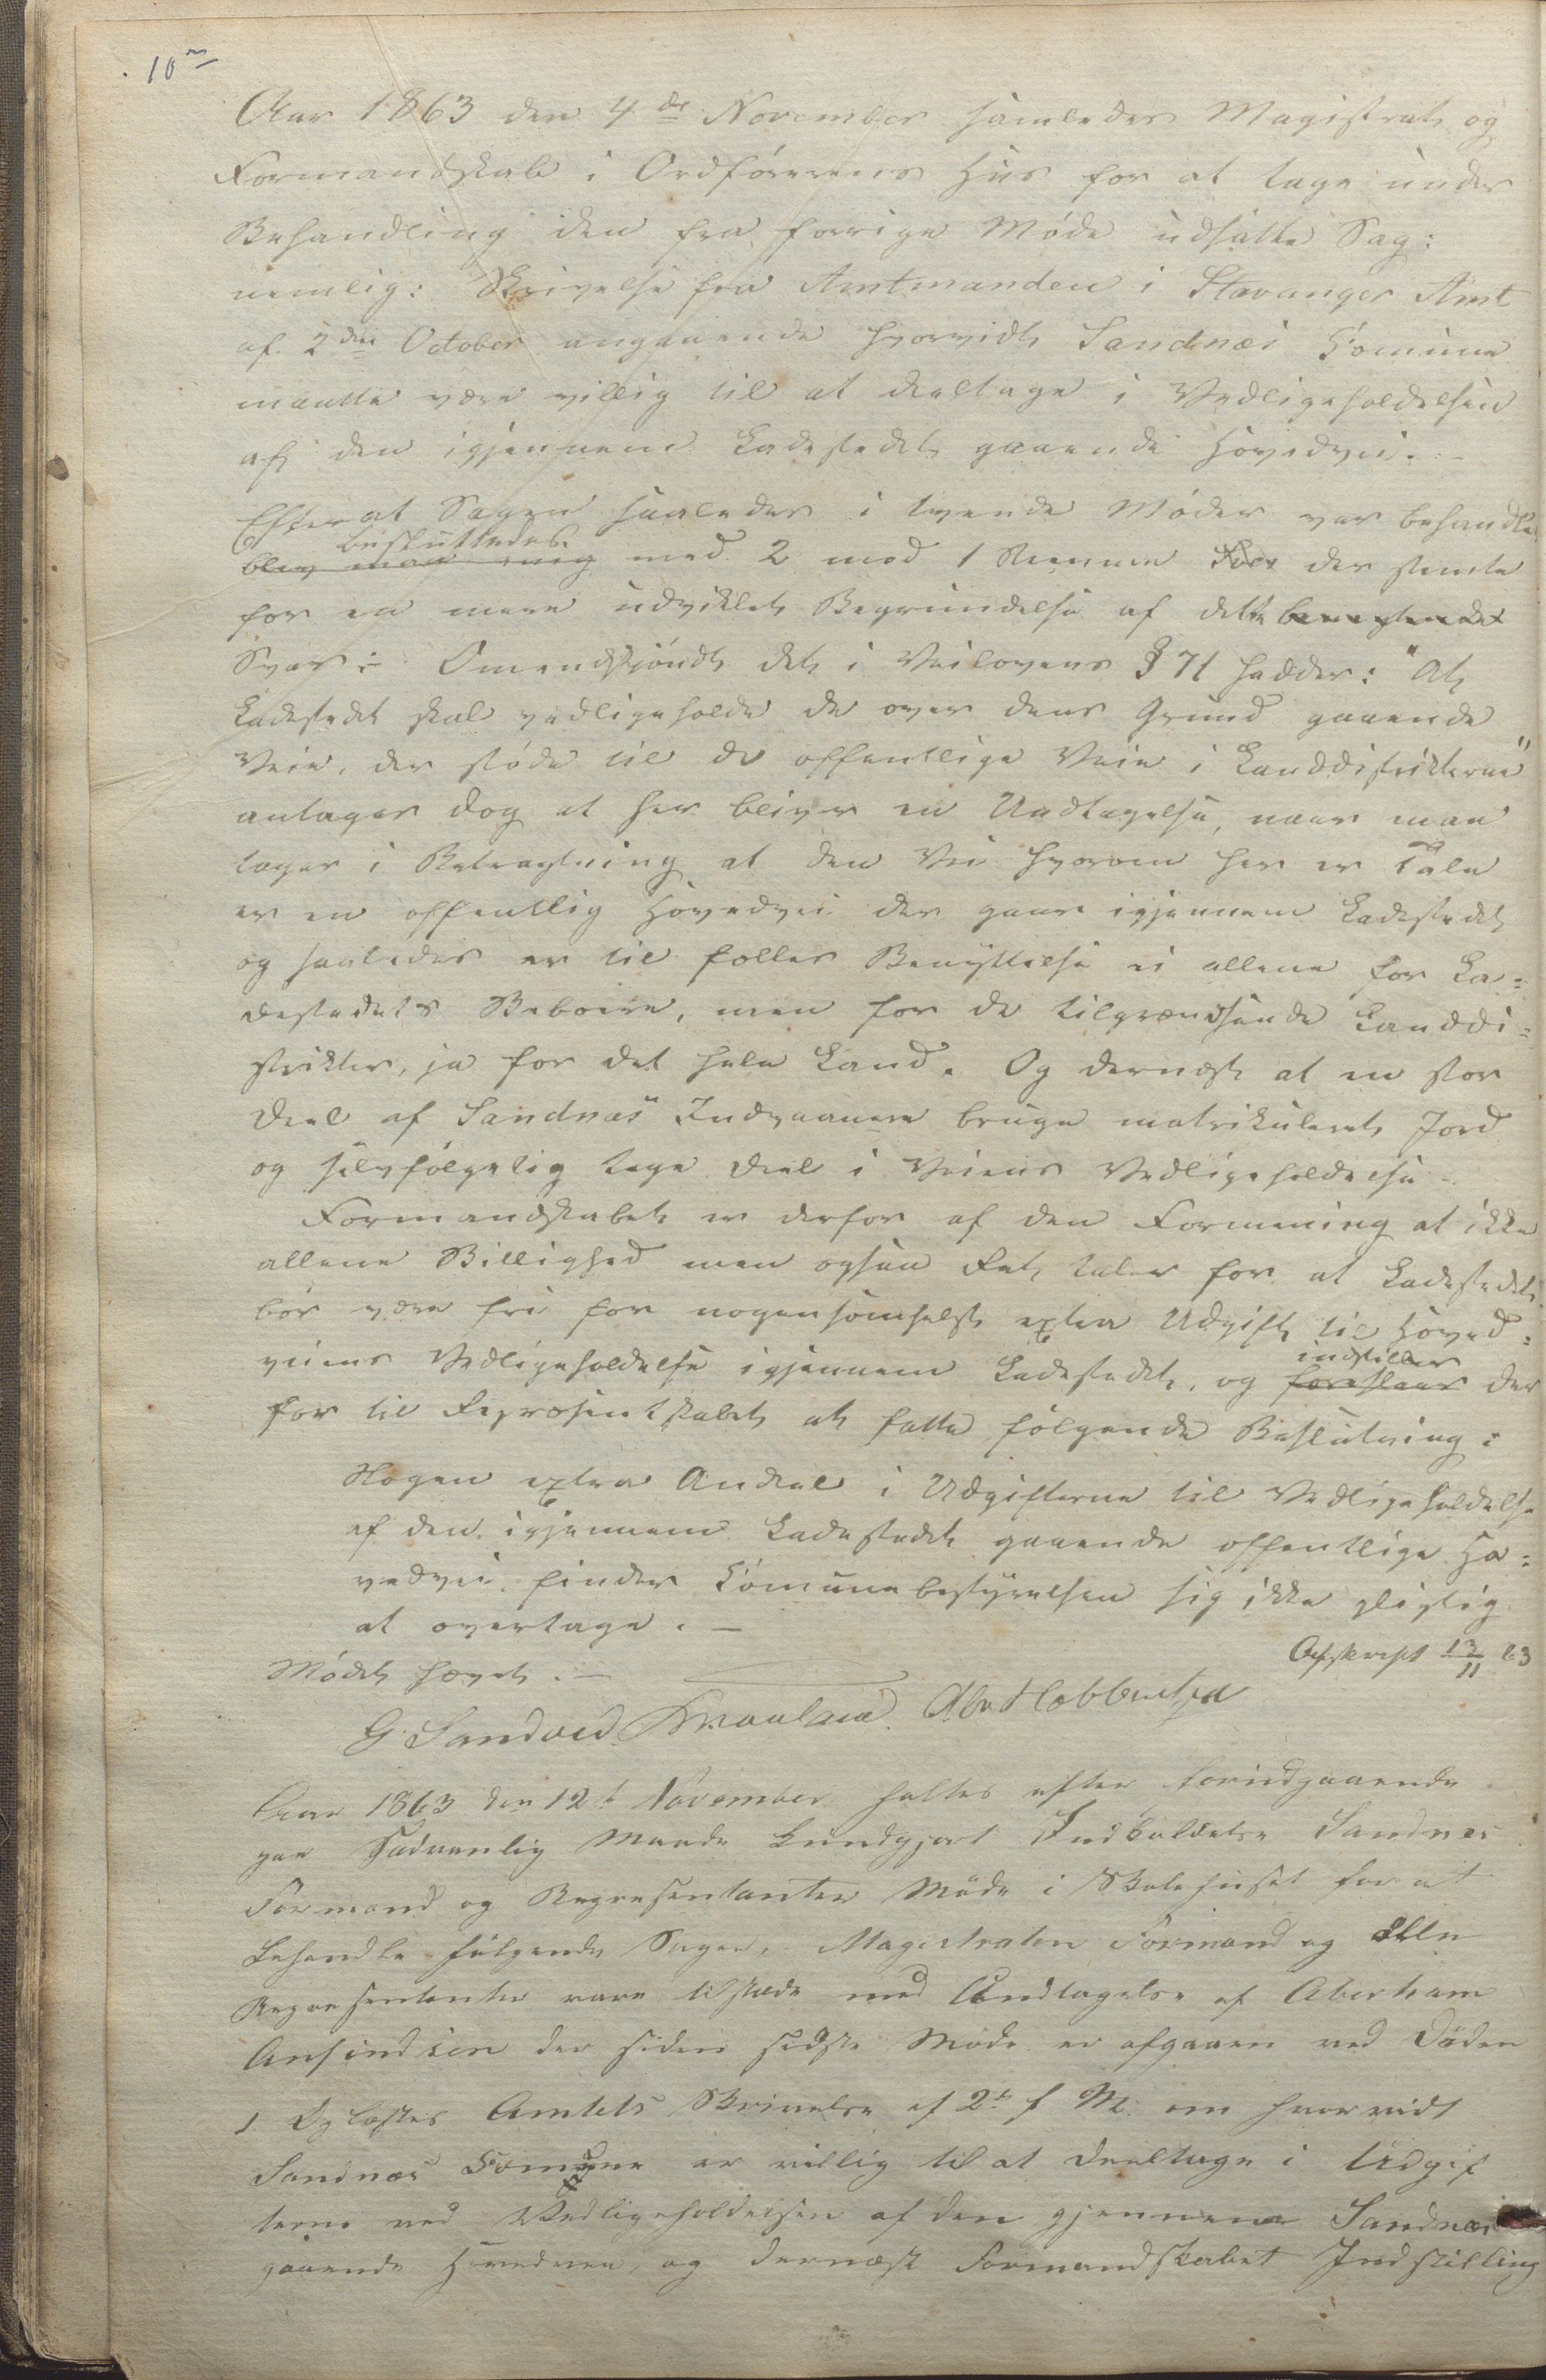 10
Aar 1863 den 4de November samledes Magistrat og
Formandskab i Ordförerens Hus for at tage under
Behandling den fra forrige Möde udsatte Sag:
nemlig: Skrivelse fra Amtmanden i Stavanger Amt
af 2den October angaaende hvorvidt Sandnæs Comune
maatte være villig til at deeltage i Vedligeholdelsen
af den igjennem Ladestedet gaaende Hovedvei. –
Efter at Sagen saaledes i tvende Möder var behandlet
besluttedes
blev man enig med 2 mod 1 Stemme der stemte
for en mere udviklet Begrundelse af dette
Svar: Omendskjöndt det i Veilovens § 71 hedder: "At
Ladestedet skal vedligeholde de over dens Grund gaaende
Veie, der støde til de offentlige Veie i Landdistrikterne"
antages dog at her bliver en Undtagelse, naar man
tager i Betragtning at den Vei hvorom her er Tale
er en offentlig Hovedvei der gaar igjennem Ladestedet
og saaledes er til fælles Benyttelse ei allene for La=
destedets Beboere, men for de tilgrændsende Landdi=
strikter, ja for det hele Land. Og dernæst at en stor
Deel af Sandnæs Indvaanere bruge matrikuleret Jord
og selvfölgelig tage Deel i Veiens Vedligeholdelse –
Formandskabet er derfor af den Formening at ikke
allene Billighed men ogsaa Ret taler for at Ladestedet
bör være fri for nogensomhelst extra Udgift til Hoved=
indstiller
veiens Vedligeholdelse igjennem Ladestedet, og foreslaar der
for til Repræsentskabet at fatte fölgende Beslutning:
Nogen extra Andeel i Udgifterne til Vedligeholdelse
af den igjennem Ladestedet gaaende offentlige Ho=
vedvei, finder Comunebestyrelsen sig ikke pligtig
at overtage. –
Afskrift 13/11 63
Mödet hævet. –
G. Sandved
Aar 1863 den 12t November holtes efter forudgaaende
paa Sædvanlig Maade kundgjort Indkaldelse Sandnes
Formænd og Representanter Möde i Skolehuset for at
behandle fölgende Sager. Magistraten Formænd og Alle
Representanter vare tilstæde med Undtagelse af Aberham
Ansindsen der siden sidste Möde er afgaaen ved Döden
1. Oplæstes Amtets Skrivelse af 2t f M. om hvorvidt
Sandnæs Comune er villig til at deeltage i Udgif
terne ved Vedligeholdelsen af den gjennem Sandnæs
gaaende Hovedvei, og dernæst Formandskabet Indstilling